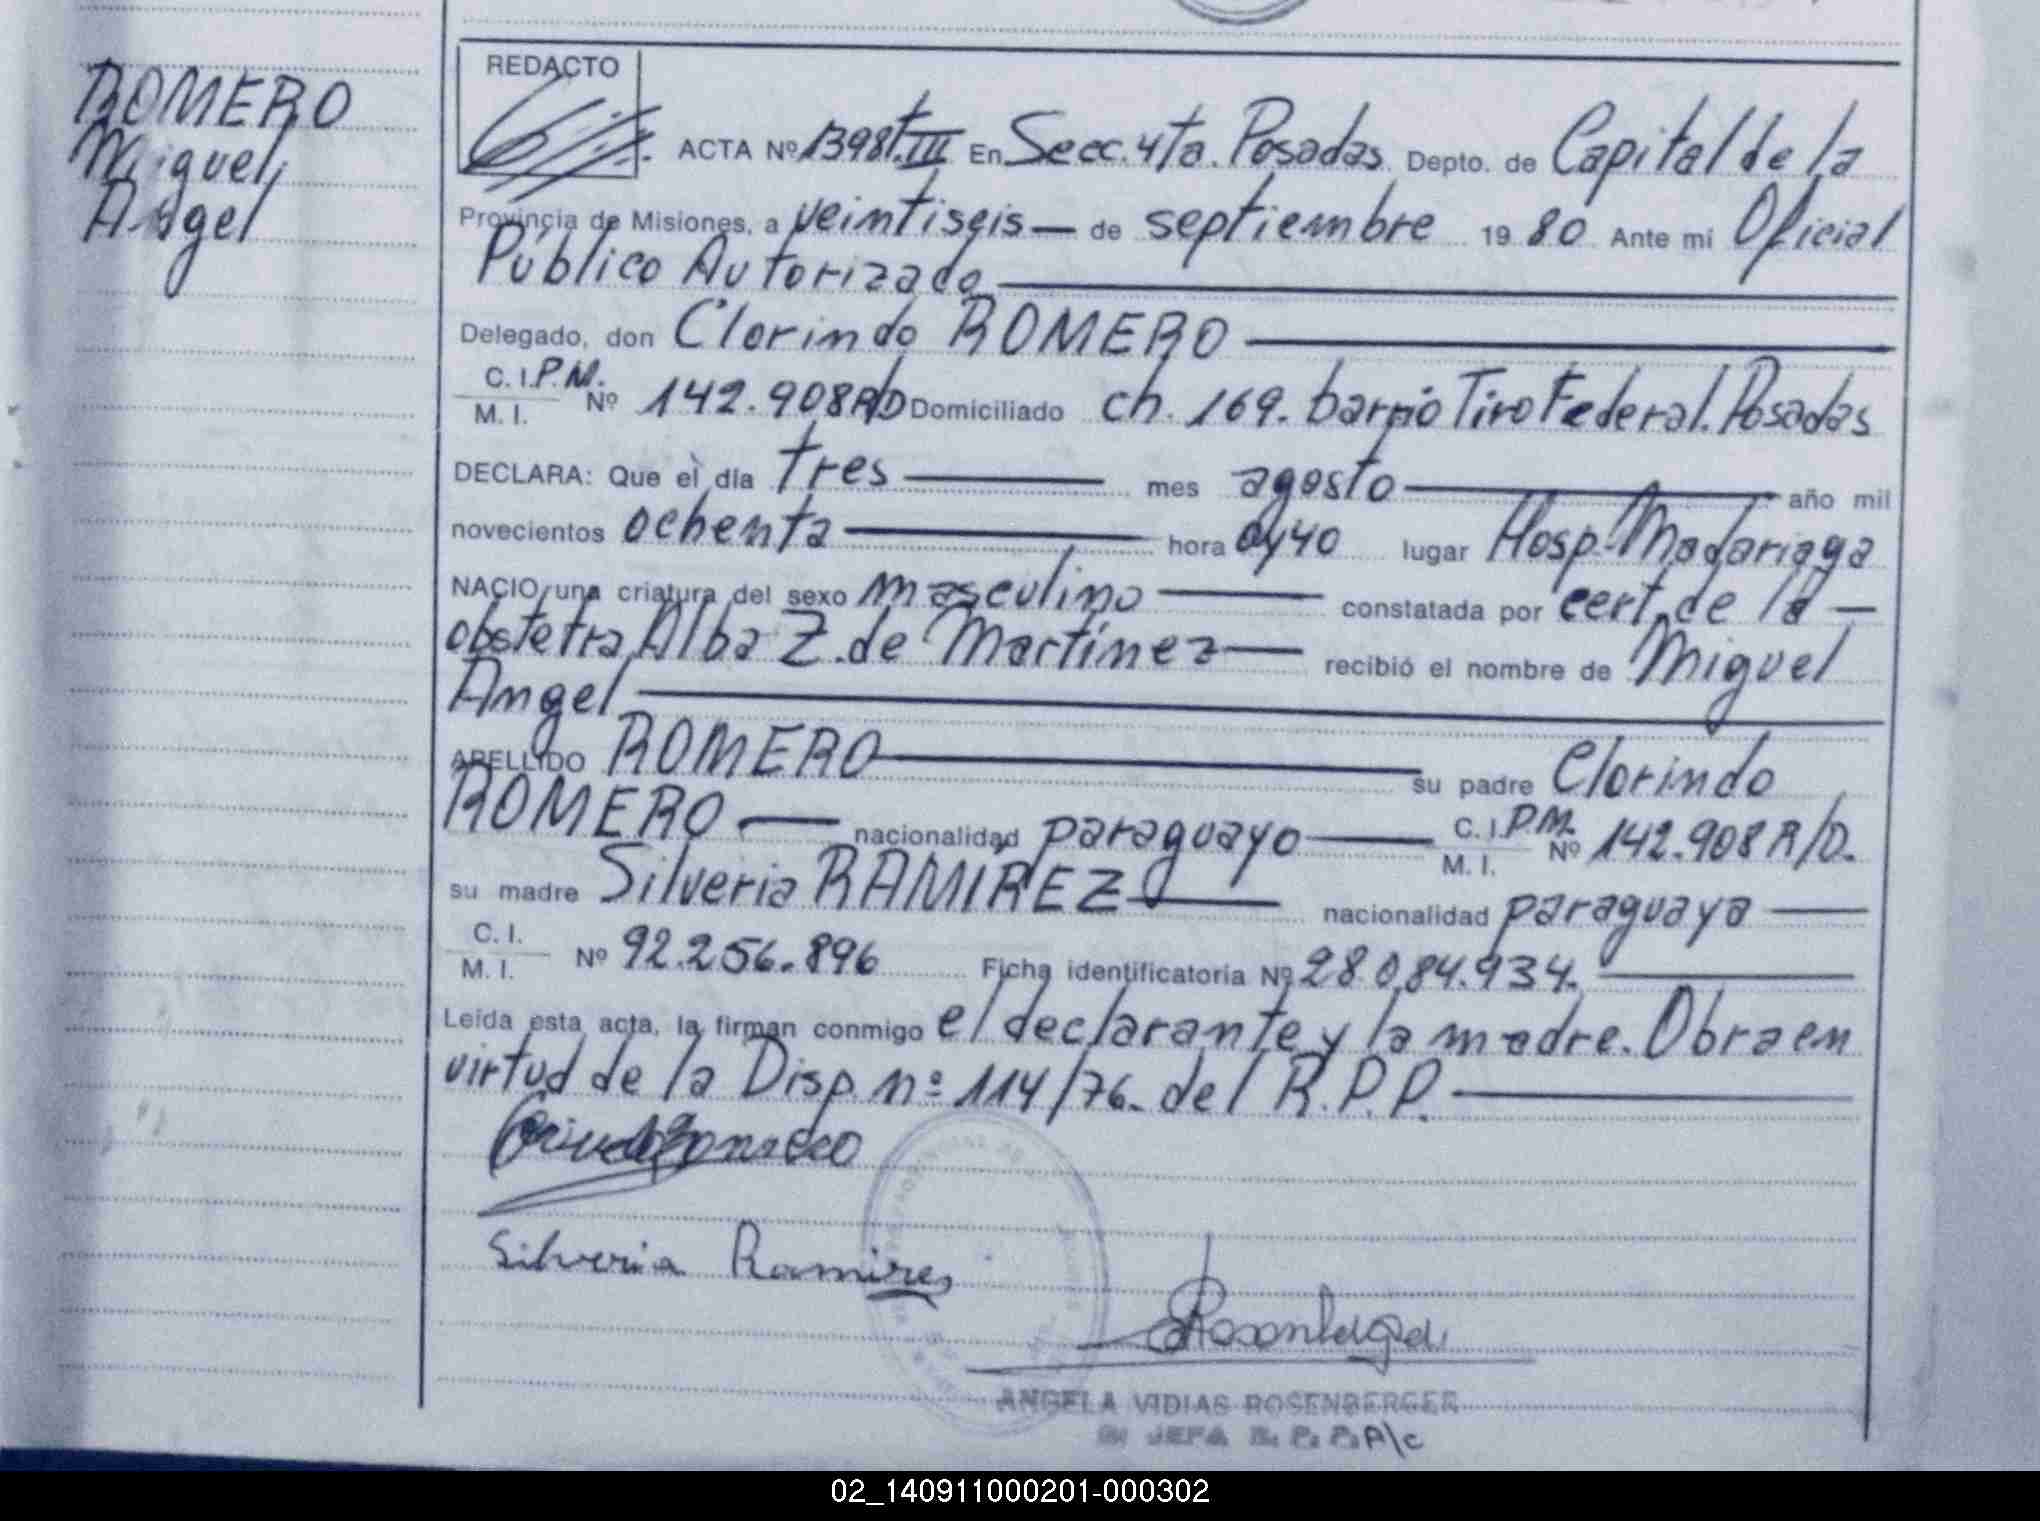 ROMERO
Miguel
Angel
REDACTO
ACTA Nº 1398 t. III En Secc. 4ta. Posadas Depto. de Capital de la
Provincia de Misiones, a veintiseis — de septiembre 19 80 Ante mi Oficial
Público Autorizado
Delegado, don Clorindo ROMERO
C. I. P. M.
M. I. Nº 142.908 R/D Domiciliado ch. 169. barrio Tiro Federal. Posadas
DECLARA: Que el dia tres mes agosto año mil
novecientos ochenta hora 0y40 lugar Hosp. Madariaga
NACIO una criatura del sexo masculino constatada por cert. de la —
obstetra Alba Z. de Martínez recibió el nombre de Miguel
Angel
APELLIDO ROMERO su padre Clorindo
ROMERO — nacionalidad paraguayo C. I. P. M.
M. I. Nº 142.908 R/D.
su madre Silveria RAMÍREZ nacionalidad paraguaya —
C. I.
M. I. Nº 92.256.896 Ficha identificatoria Nº 28.084.934.
Leída esta acta, la firman conmigo el declarante y la madre. Obra en
virtud de la Disp. nº 114/76. del R.P.P.
Silveria Ramires
ANGELA VIDIAS ROSENBERGER
JEFA R. P. P. A/c
02_140911000201-000302